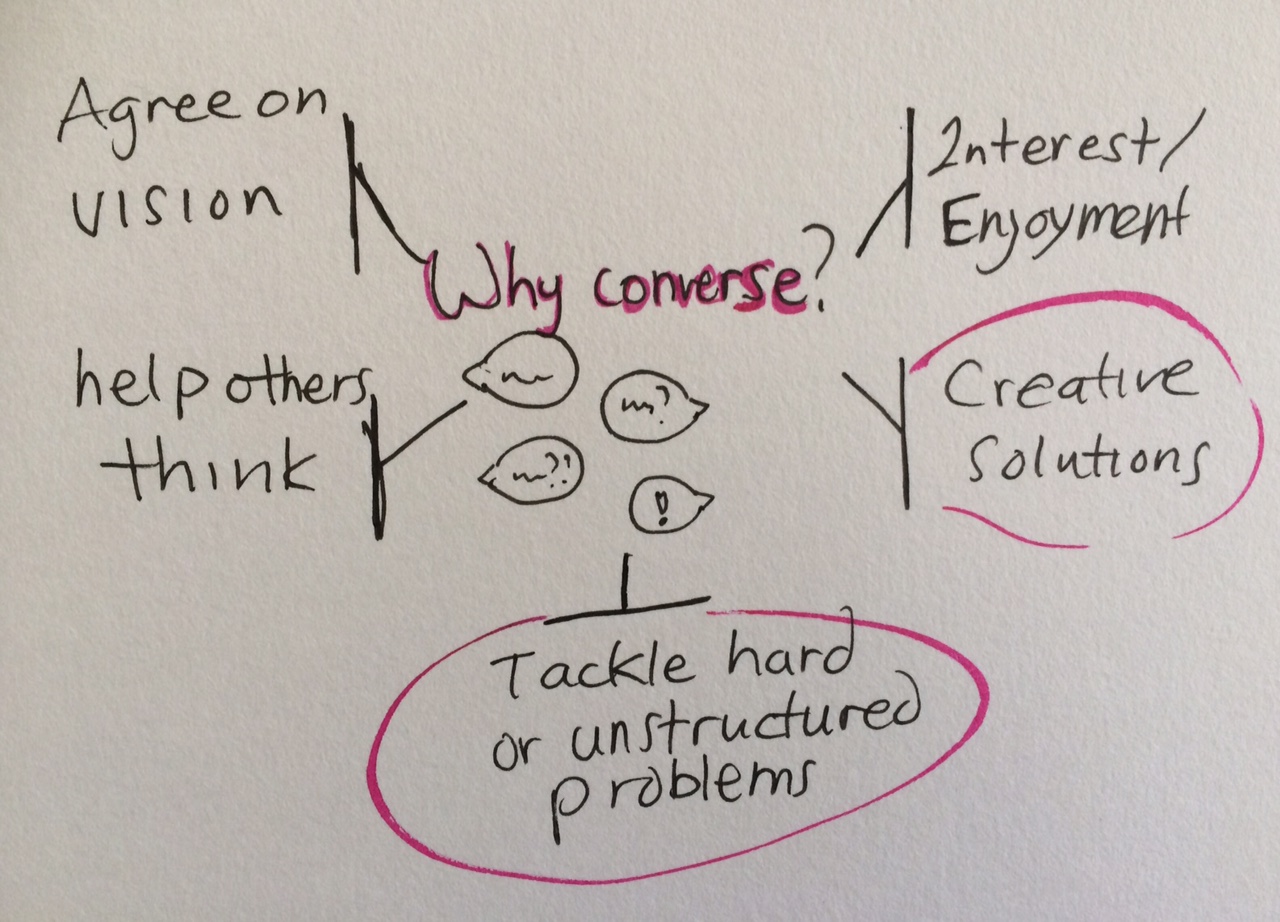 Agree on
vision
Interest/
Enjoyment
Why converse?
help others
think
m?
m?!
!
Creative
Solutions
Tackle hard
or unstructured
problems